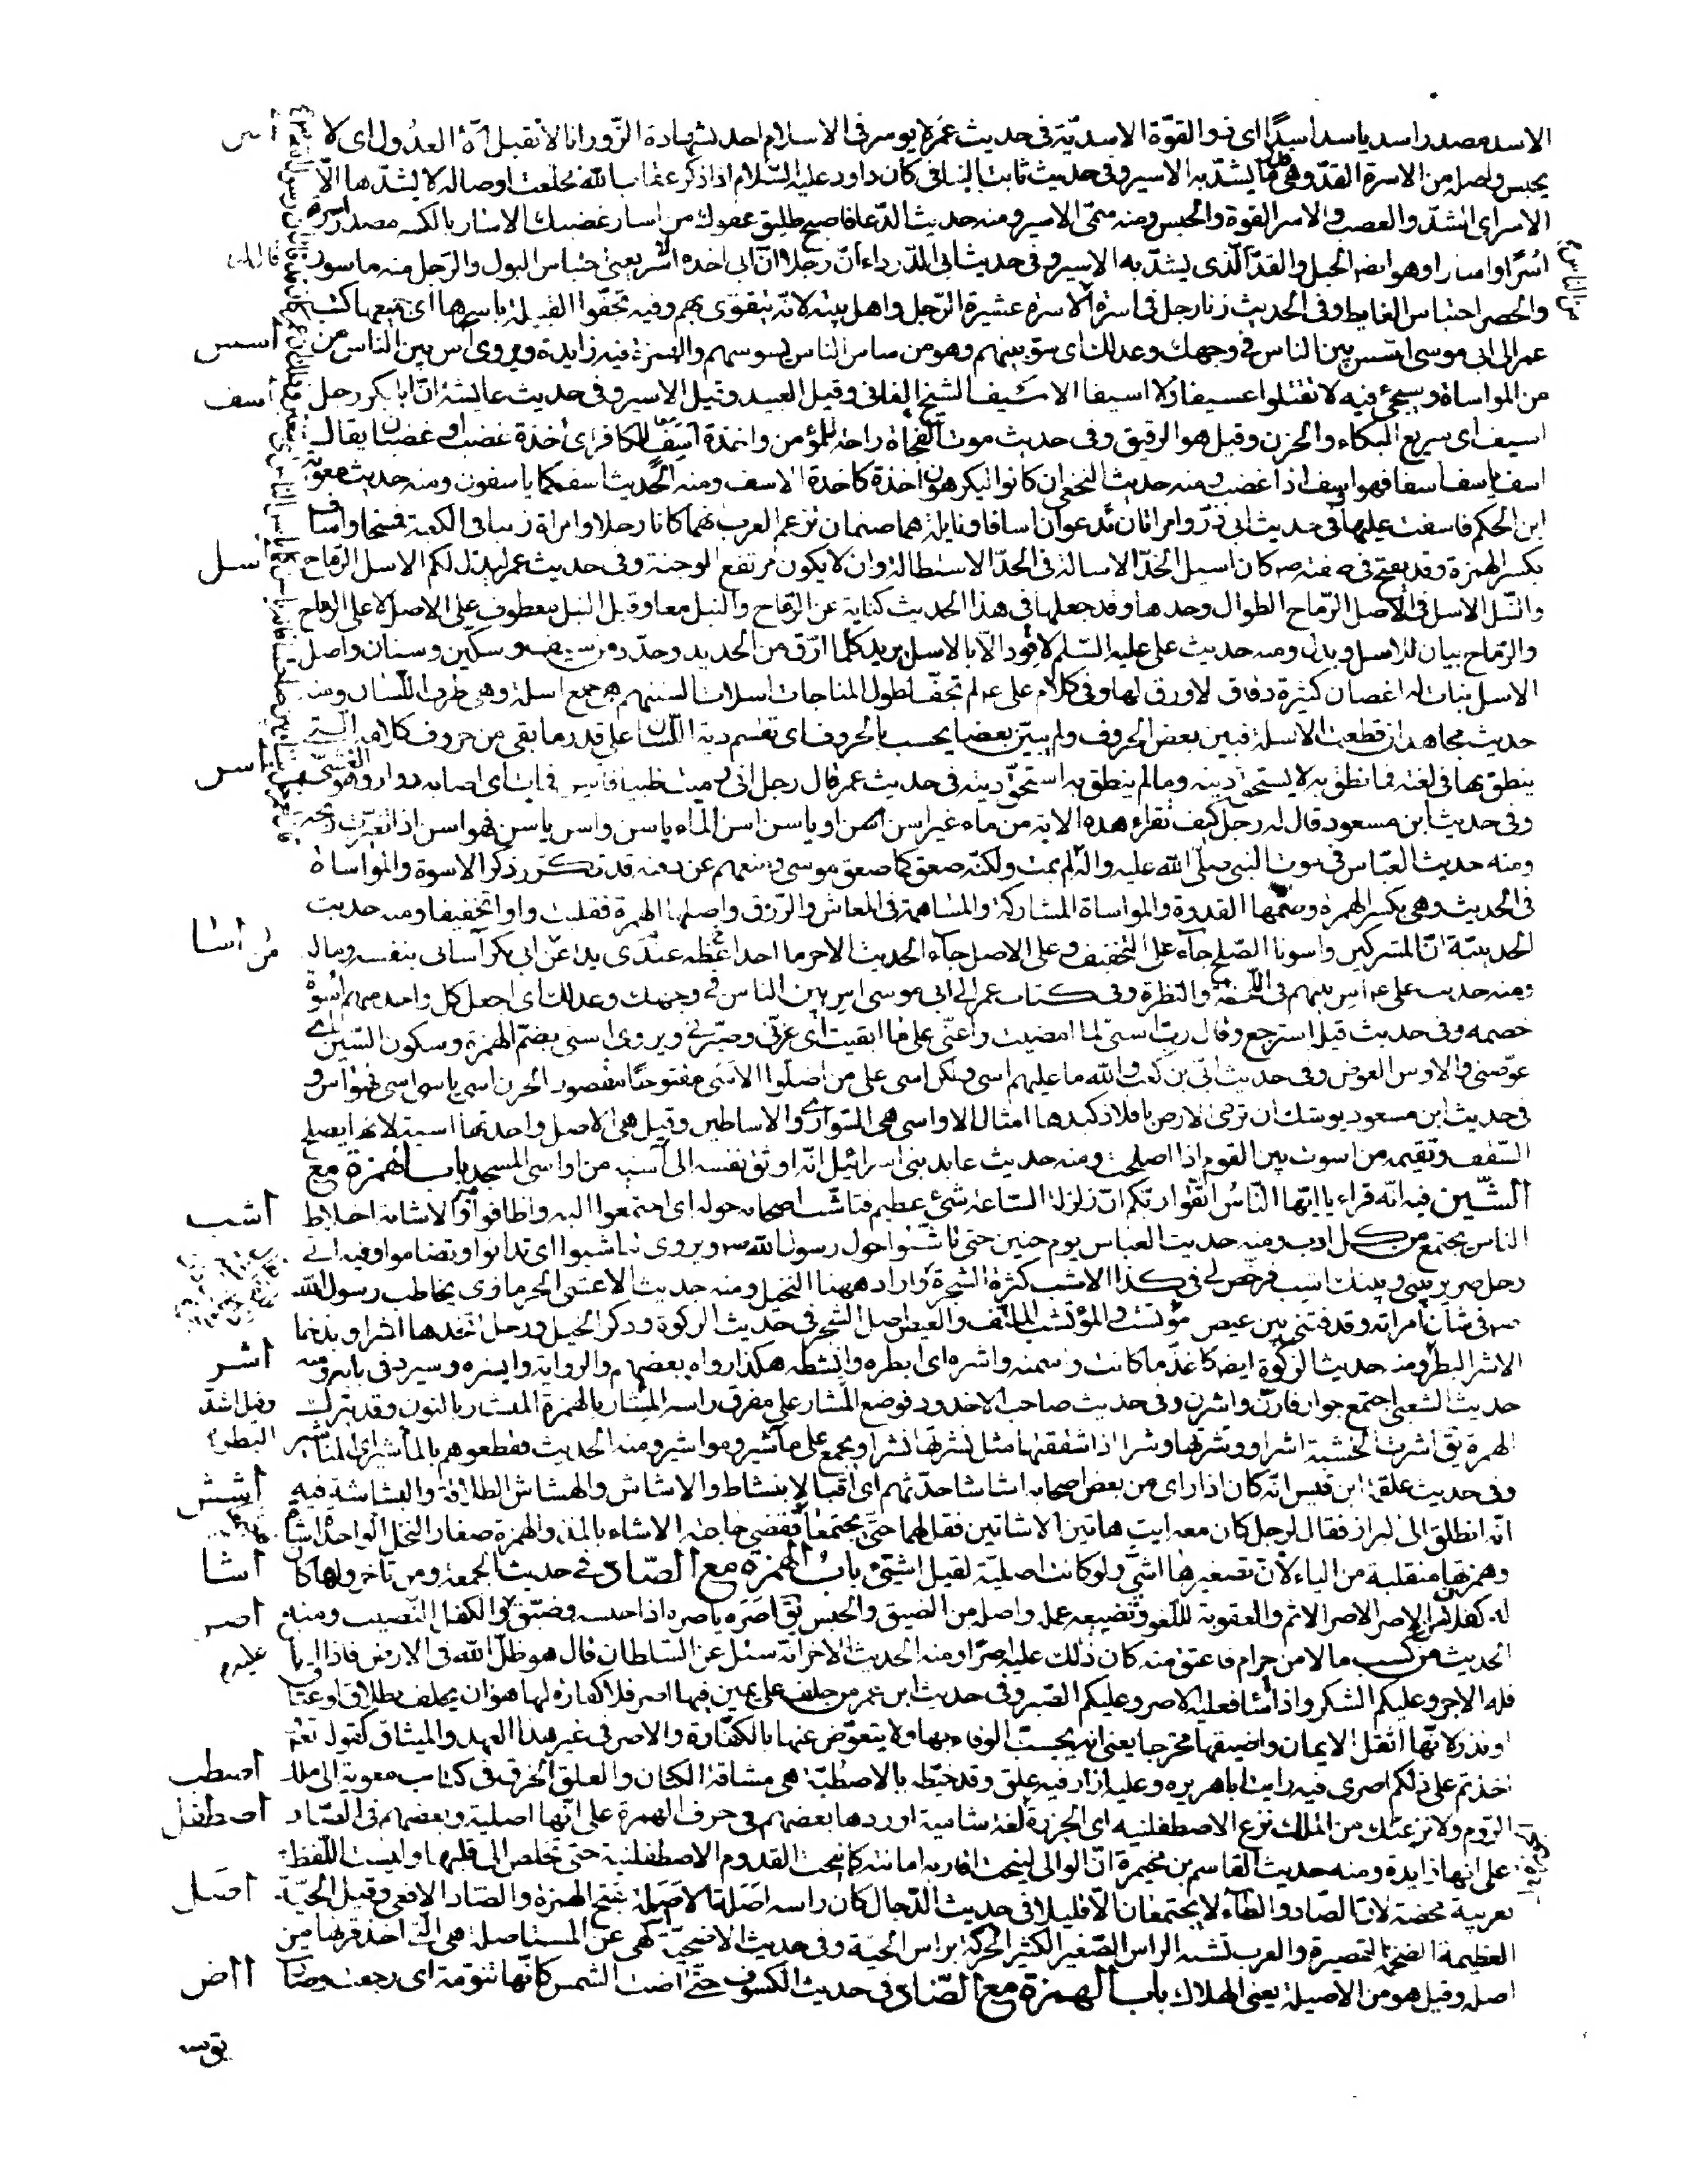 الاسد مصدر اسد ياسد اسدًا اى ذو القوّة الاسديّة فى حديث عمر لا يوسر فى الاسلام احد بشهادة الزّور انا لا نقبل الّا العدول اى لا
يحبس واصله من الاسرة القدّ وهى ما يشدّ به الاسير وفى حديث ثابت البنانى كان داود عليه السّلام اذا ذكر عقاب الله تخلعت اوصاله لا يشدّها الّا
الاسر اى الشدّ والعصب والاسر القوة والحبس ومنه سمّى الاسير ومنه حديث الدّعا فاصبح طليق عفوك من اسار غضبك الاسار بالكسر مصدر اسرته
اسرًا واسارا وهو ايضا الحبل والقدّ الّذى يشدّ به الاسير وفى حديث ابى الدّرداء انّ رجلا قال انّ ابى اخذه الاسر يعنى احتباس البول والرّجل منه ماسور
والحصر احتباس الغايط وفى الحديث زنا رجل فى اسرة الاسرة عشيرة الرّجل واهل بيته لانّه يتقوّى بهم وفيه تجفّوا القبيلة باسرها اى جميعها كتب
عمر الى ابى موسى اسس بين الناس فى وجهك وعدلك اى سوّ بينهم وهو من ساس الناس يسوسهم والهمزة فيه زايدة ويروى آس بين الناس من
من المواساة وسيجئ فيه لا تقتلوا عسيفا ولا اسيفا الاسيف الشيخ الفانى وقيل العبد وقيل الاسير وفى حديث عايشة انّ ابا بكر رجل
اسيف اى سريع البكاء والحزن وقيل هو الرقيق وفى حديث موت الفجاة راحة للمؤمن واخذة اسف للكافر اى اخذة غضب او غضبان يقال
اسف ياسف اسفا فهو اسف اذا غضب ومنه حديث النخعى ان كانوا ليكرهون اخذة كاخذة الاسف ومنه الحديث اسف كما ياسفون ومنه حديث معوية
ابن الحكم فاسفت عليها فى حديث ابى ذرّ وامراتان تدعوان اسافا ونايلة هما صنمان تزعم العرب انهما كانا رجلا وامراة زنيا فى الكعبة فمسخا واساف
بكسر الهمزة وقد يفتح فى صفته ص كان اسيل الخدّ الاسالة فى الخدّ الاستطالة وان لا يكون مرتفع الوجنة وفى حديث عمر ليذل لكم الاسل الرّماح
والنّبل الاسل فى الاصل الرّماح الطوال وحدها وقد جعلها فى هذا الحديث كناية عن الرّماح والنبل معا وقيل النبل معطوف على الاسل لا على الرماح
والرّماح بيان للاسل وبدل ومنه حديث على عليه السّلم لا قود الّا بالاسل يريد كلما ارّق من الحديد وحدّد من سيف وسكين وسنان واصل
الاسل نبات له اغصان كثيرة دقاق لا ورق لها وفى كلام على ع لم تجفّ لطول المناجات اسلات السنتهم هى جمع اسلة وهى طرف اللّسان ومنه
حديث مجاهد ان قطعت الاسلة فبين بعض الحروف ولم يبيّن بعضا يحسب بالحروف اى تقسم دية اللّسان على قدر ما بقى من حروف كلامه التى
ينطق بها فى لغته فما نطق به لا يستحق ديته وما لم ينطق به استحقّ ديته فى حديث عمر قال رجل انى رميت ظبيا فاسن فمات اى اصابه دوار وهو الغشى
وفى حديث ابن مسعود قال له رجل كيف تقراء هذه الاية من ماء غير اسن او ياسن اسن الماء ياسن واسن ياسن فهو اسن اذا تغيّرت ريحه
ومنه حديث العبّاس فى موت النبى صلى الله عليه واله لم يمت ولكنّه صعق كما صعق موسى ومنعهم عن دفنه قد تكرّر ذكر الاسوة والمواساة
فى الحديث وهى بكسر الهمزة وضمّها القدوة والمواساة المشاركة والمساهمة فى المعاش والرّزق واصلها الهمزة فقلبت واوا تخفيفا ومنه حديث
الحديبيّة انّ المشركين واسونا الصّلح جاء على التخفيف وعلى الاصل جاء الحديث الاخر ما احد اعظم عندى يدا من ابى بكر آسانى بنفسه وماله
ومنه حديث على ع اس بينهم فى اللحظة والنظرة وفى كتاب عمر الى ابى موسى اس بين الناس فى وجهك وعدلك اى اجعل كل واحد منهم اسوة
خصمه وفى حديث قيلة استرجع وقال ربّ اسنى لما امضيت واعنّى على ما ابقيت اى عزّنى وصبّرنى ويروى اسنى بضمّ الهمزة وسكون السّين اى
عوّضنى والاوس العوض وفى حديث ابىّ بن كعب والله ما عليهم اسى ولكن اسى على من اضلّوا الاسى مفتوحًا مقصور الحزن اسى ياسى اسى فهو اس و
فى حديث ابن مسعود يوشك ان ترمى الارض بافلاذ كبدها امثال الاواسى هى السّوارى والاساطين وقيل هى الاصل واحدتها اسية لانها يصلح
السّقف وتقيمه من اسوت بين القوم اذا اصلحت ومنه حديث عابد بنى اسرائيل انّه اوثق نفسه الى آسية من اواسى المسجد باب الهمزة مع
الشّين فيه انّه قراء يا ايّها النّاس اتّقوا ربّكم انّ زلزلة السّاعة شئ عظيم فتاشّب اصحابه حوله اى اجتمعوا اليه واطافوا به والاشابة اخلاط
الناس يجتمع من كل اوب ومنه حديث العباس يوم حنين حتى تاشّبوا حول رسول الله ص ويروى تناشبوا اى تدانوا وتضاموا وفيه انى
رجل ضرير بينى وبينك اشب فرخّص لى فى كذا الاشب كثرة الشجر واراد ههنا النخيل ومنه حديث الاعشى الحرمازى يخاطب رسول الله
ص فى شان امراته وقد فتنى بين عيص مؤتشب والمؤتشب الملتفّ والعيص اصل الشجر فى حديث الزكوة وذكر الخيل ورجل اتخذها اشرا وبذخا
الاشر البطر ومنه حديث الزكوة ايضا كاغذّ ما كانت واسمنه واشره اى ابطره وانشطه هكذا رواه بعضهم والرواية وابشره وسيرد فى بابه ومنه
حديث الشعبى اجتمع جوار فارنّ واشرن وفى حديث صاحب الاخدود فوضع المئشار على مفرق راسه المئشار بالهمزة المنشار بالنون وقد يترك
الهمزة يق اشرت الخشبة اشرا ووشرتها وشرا اذا شققتها مثل نشرتها نشرا ويجمع على ماشير ومواشير ومنه الحديث فقطعوهم بالماشير اى المناشير
وفى حديث علقمة ابن قيس انّه كان اذا راى من بعض اصحابه اشاشا حدّثهم اى اقبالا بنشاط والاشاش والهشاش الطلاقة والبشاشة فيه
انّه انطلق الى البراز فقال لرجل كان معه ايت هاتين الاشاتين فقل لهما حتى يجتمعا فقضى حاجته الاشاء بالمدّ والهمزة صغار النخل الواحدة اشاة
وهمزتها منقلبة من الياء لانّ تصغيرها اشىّ ولو كانت اصلية لقيل اشيئ باب الهمزة مع الصّاد فى حديث الجمعة ومن تاخر ولغا كان
له كفلان من الاصر الاصر الاثم والعقوبة للغوه وتضييعه عمله واصله من الضيق والحبس يق اصره ياصره اذا حبسه وضيّق والكفل النّصيب ومنه
الحديث من كسب مالا من حرام فاعتق منه كان ذلك عليه اصرا ومنه الحديث الاخر انّه سئل عن السلطان قال هو ظلّ الله فى الارض فاذا احسن
فله الاجر وعليكم الشكر واذا اساء فعليه الاصر وعليكم الصّبر وفى حديث ابن عمر من حلف على يمين فيها اصر فلا كفارة لها هو ان يحلف بطلاق او عتاق
او نذر لانّها اثقل الايمان واضيقها مخرجا يعنى انه يجب الوفاء بها ولا يتعوّض عنها بالكفّارة والاصر فى غير هذا العهد والميثاق كقوله تعالى
اخذتم على ذلكم اصرى فيه رايت ابا هريره وعليه ازار فيه علق وقد خيّطه بالاصطبّة هى مشاقة الكتان والعلق الخرق فى كتاب معوية الى ملك
الرّوم ولانزعنّك من الملك نزع الاصطفلينة اى الجزرة لغة شامية اوردها بعضهم فى حرف الهمزة على انّها اصلية وبعضهم فى الصّاد
على انها زايدة ومنه حديث القاسم بن مخيمرة انّ الوالى لينحت اقاربه امانته كما تنحت القدوم الاصطفلينة حتى تخلص الى قلبها وليست اللّفظة
بعربية محضة لانّ الصّاد والطّاء لا يجتمعان الّا قليلا فى حديث الدّجال كان راسه اصلة الاصلة بفتح الهمزة والصّاد الافعى وقيل الحيّة
العظيمة الضخمة القصيرة والعرب تشبه الراس الصّغير الكثير الحركة براس الحيّة وفى حديث الاضحيّة نهى عن المستاصلة هى التى اخذ قرنها من
اصله وقيل هو من الاصيلة يعنى الهلاك باب الهمزة مع الضّاد فى حديث الكسوف حتى اضت الشمس كانّها تنّومة اى رجعت وصارت
اسس
اسف
اسل
اسن
اسا
اشب
اشر
وقيل اشدّ
البطر
اشش
اشا
اصر
اصطب
اصطفل
اصل
اض